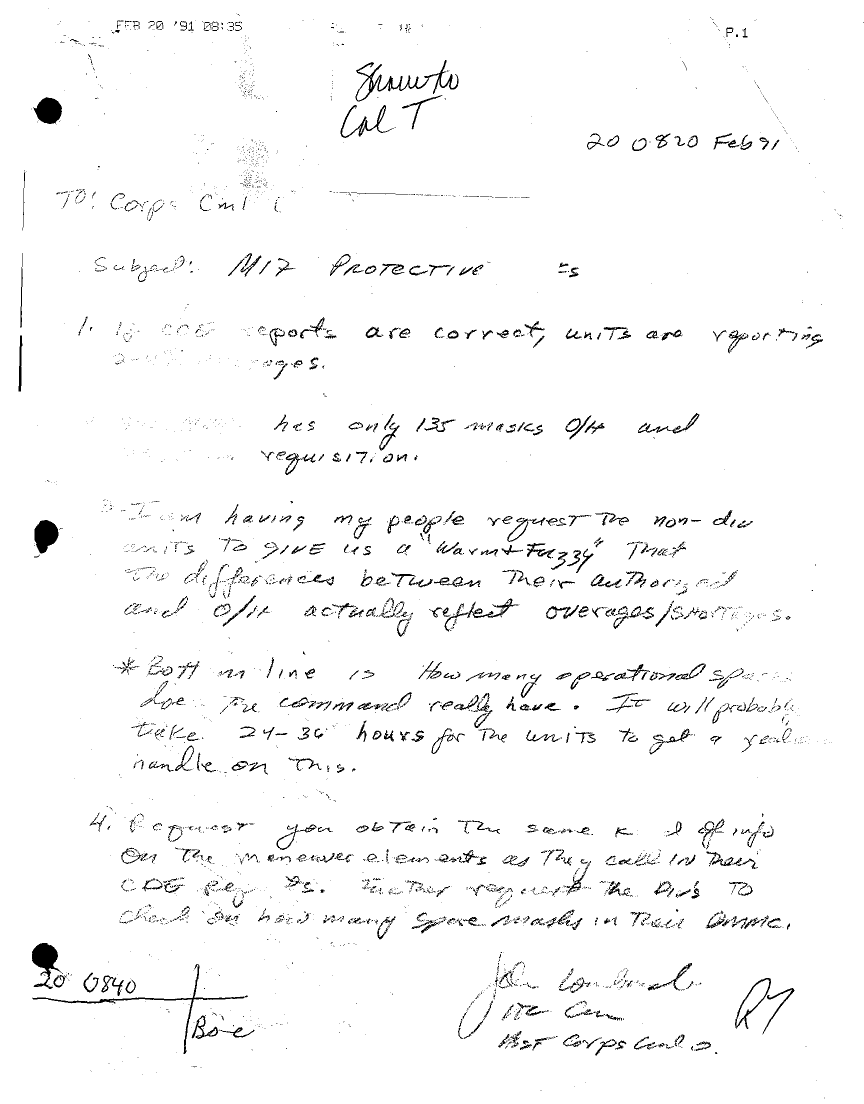 FEB 20 '91 08:35
P.1
Show to
Col T
20 0820 Feb 91
TO: Corps Cml
Subject: M17 PROTECTIVE
1. If CDE reports are correct, units are reporting
has only 135 masks O/H and
requisition.
3. I am having my people request the non-div
units to give us a "Warm + Fuzzy" That
the differences between their authorized
and O/H actually reflect overages/shortages.
* Bottom line is How many operational spares
doe the command really have. It will probably
take 24-36 hours for the units to get a
handle on this.
4. Request you obtain the same of info
on the maneuver elements as they call in their
CDE Further request the Div's to
check on how many spare masks in their DMMC.
John
LTC Cm
Asst Corps Cml O.
20 0840